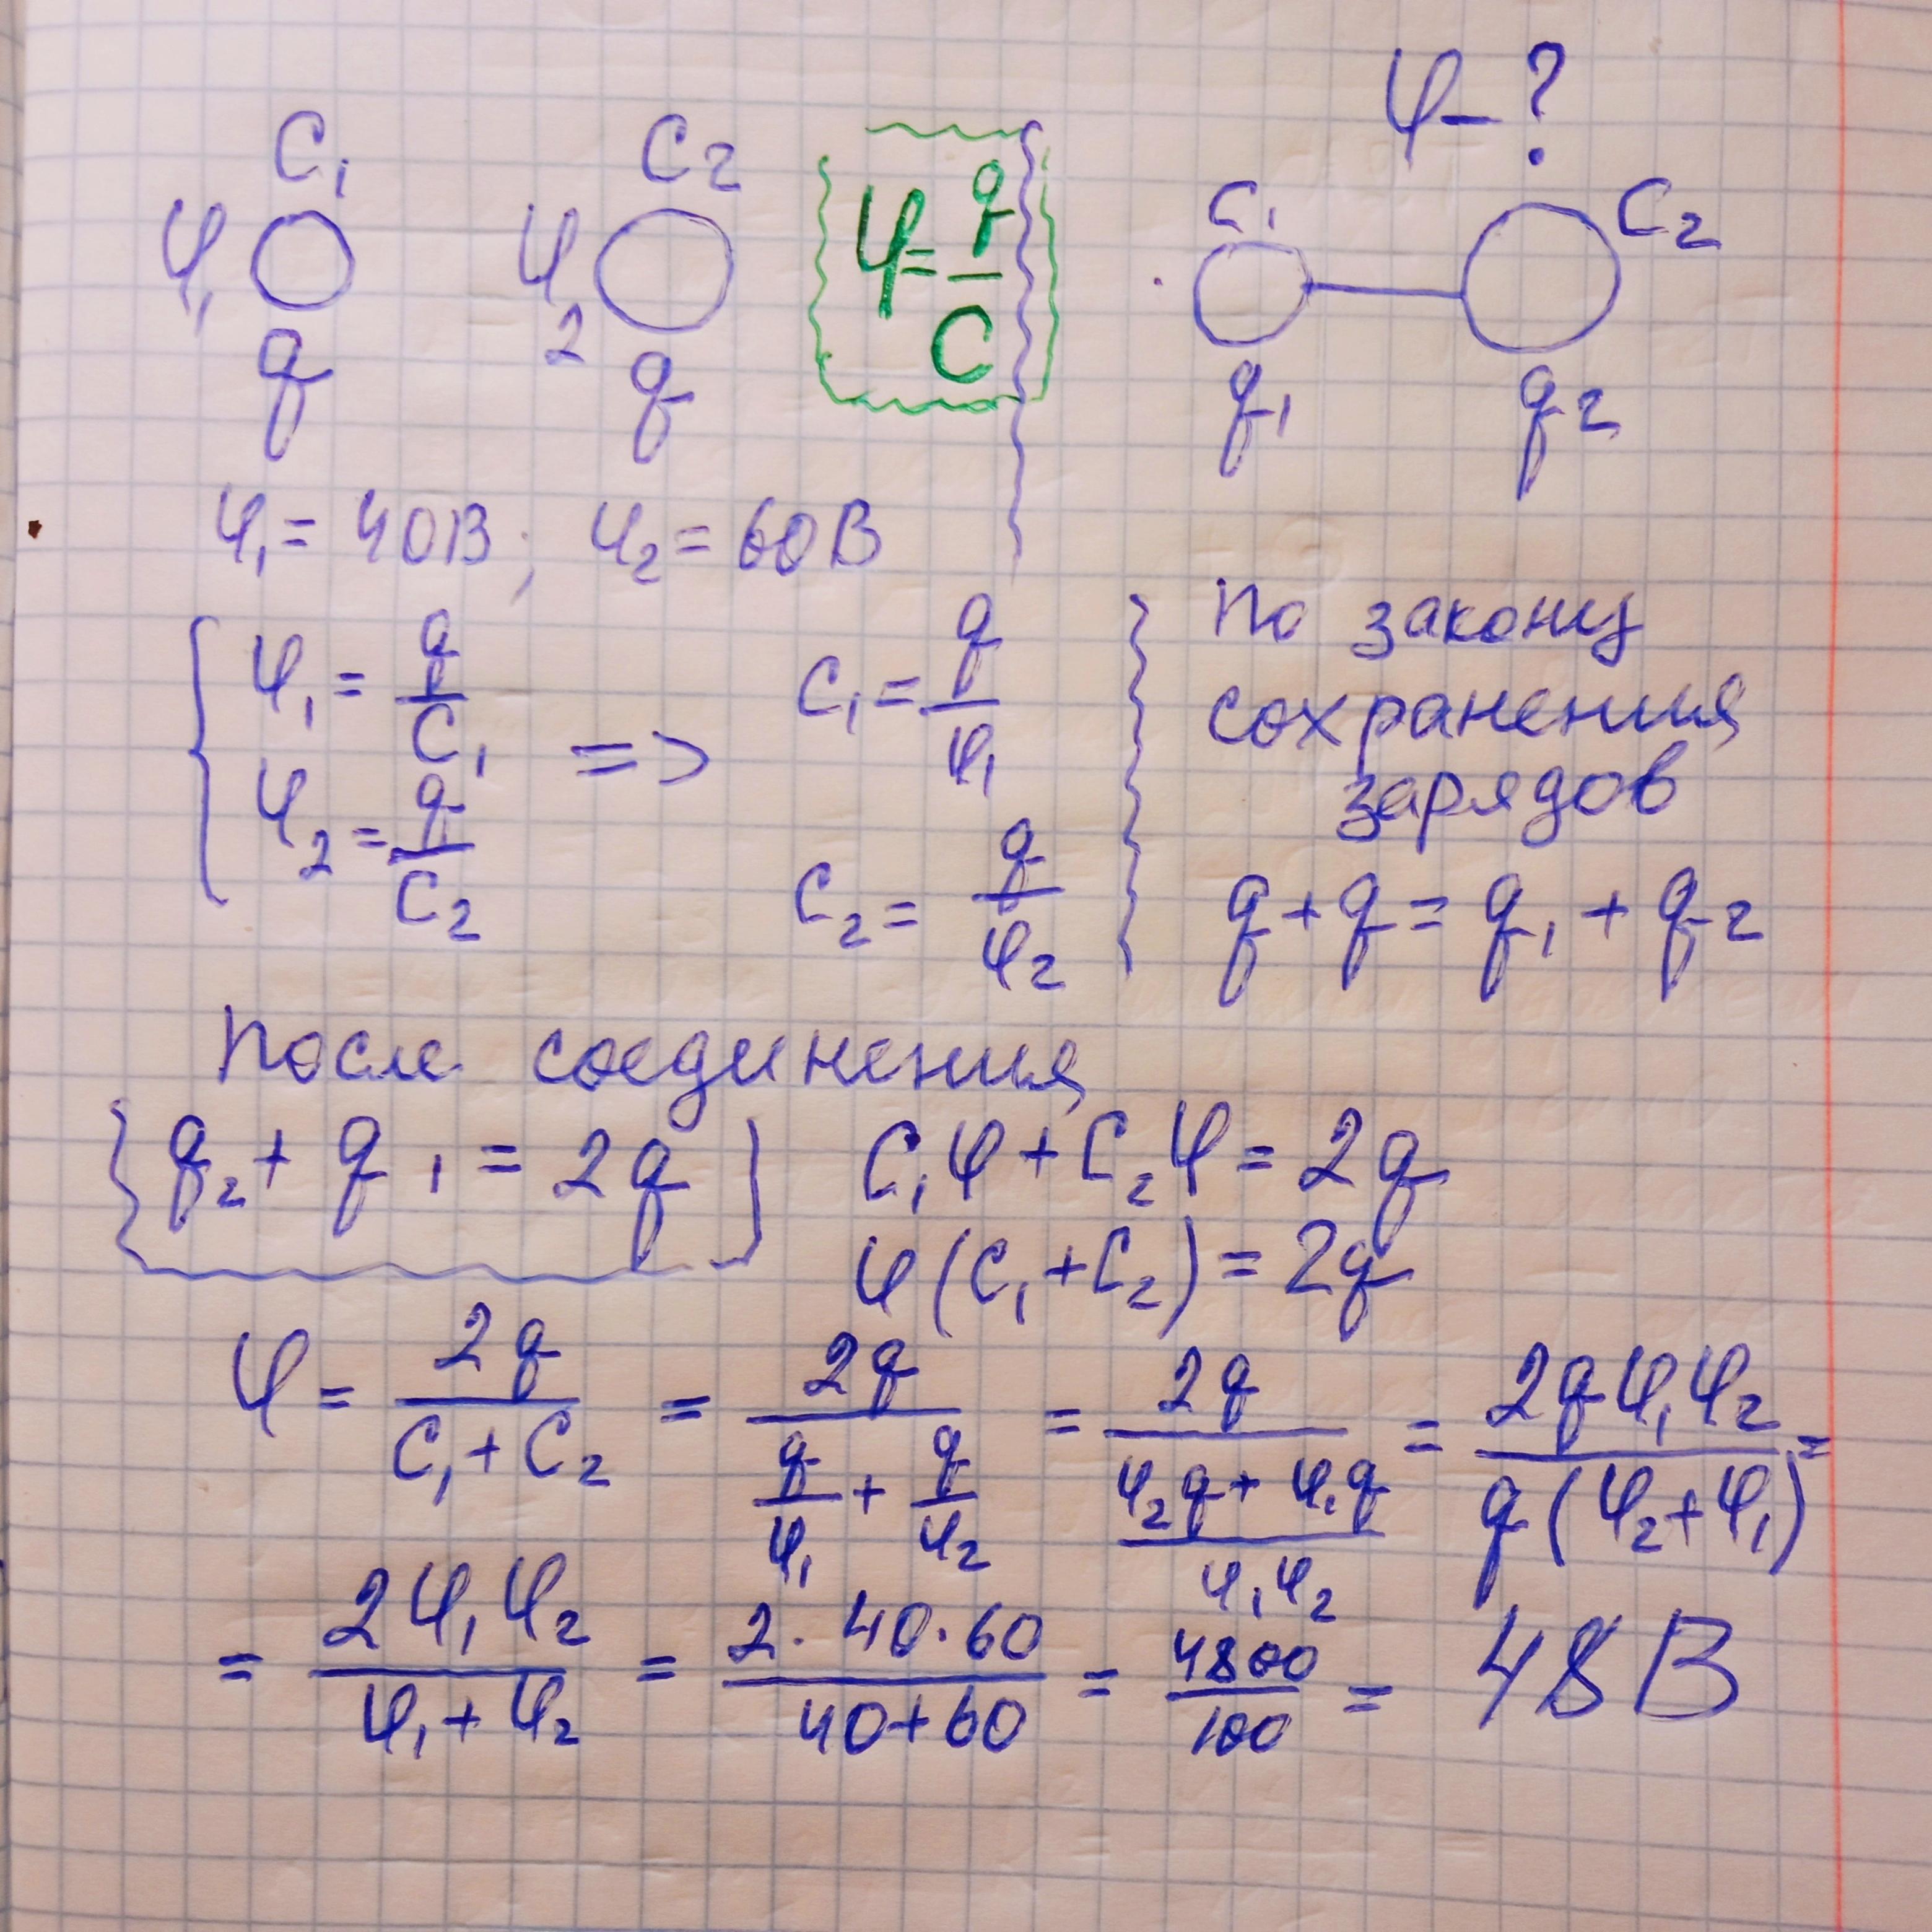 φ - ?
C₁ C₂ C₁ C₂
φ₁ φ₂ φ = q/C
q q q₁ q₂
φ₁ = 40В; φ₂ = 60В
φ₁ = q/C₁ => C₁ = q/φ₁
φ₂ = q/C₂ C₂ = q/φ₂
По закону
сохранения
зарядов
q + q = q₁ + q₂
После соединения
q₂ + q₁ = 2q
C₁φ + C₂φ = 2q
φ(C₁ + C₂) = 2q
φ = 2q/(C₁ + C₂) = 2q/(q/φ₁ + q/φ₂) = 2q/((φ₂q + φ₁q)/(φ₁φ₂)) = 2qφ₁φ₂/(q(φ₂ + φ₁)) =
= 2φ₁φ₂/(φ₁ + φ₂) = (2·40·60)/(40+60) = 4800/100 = 48В